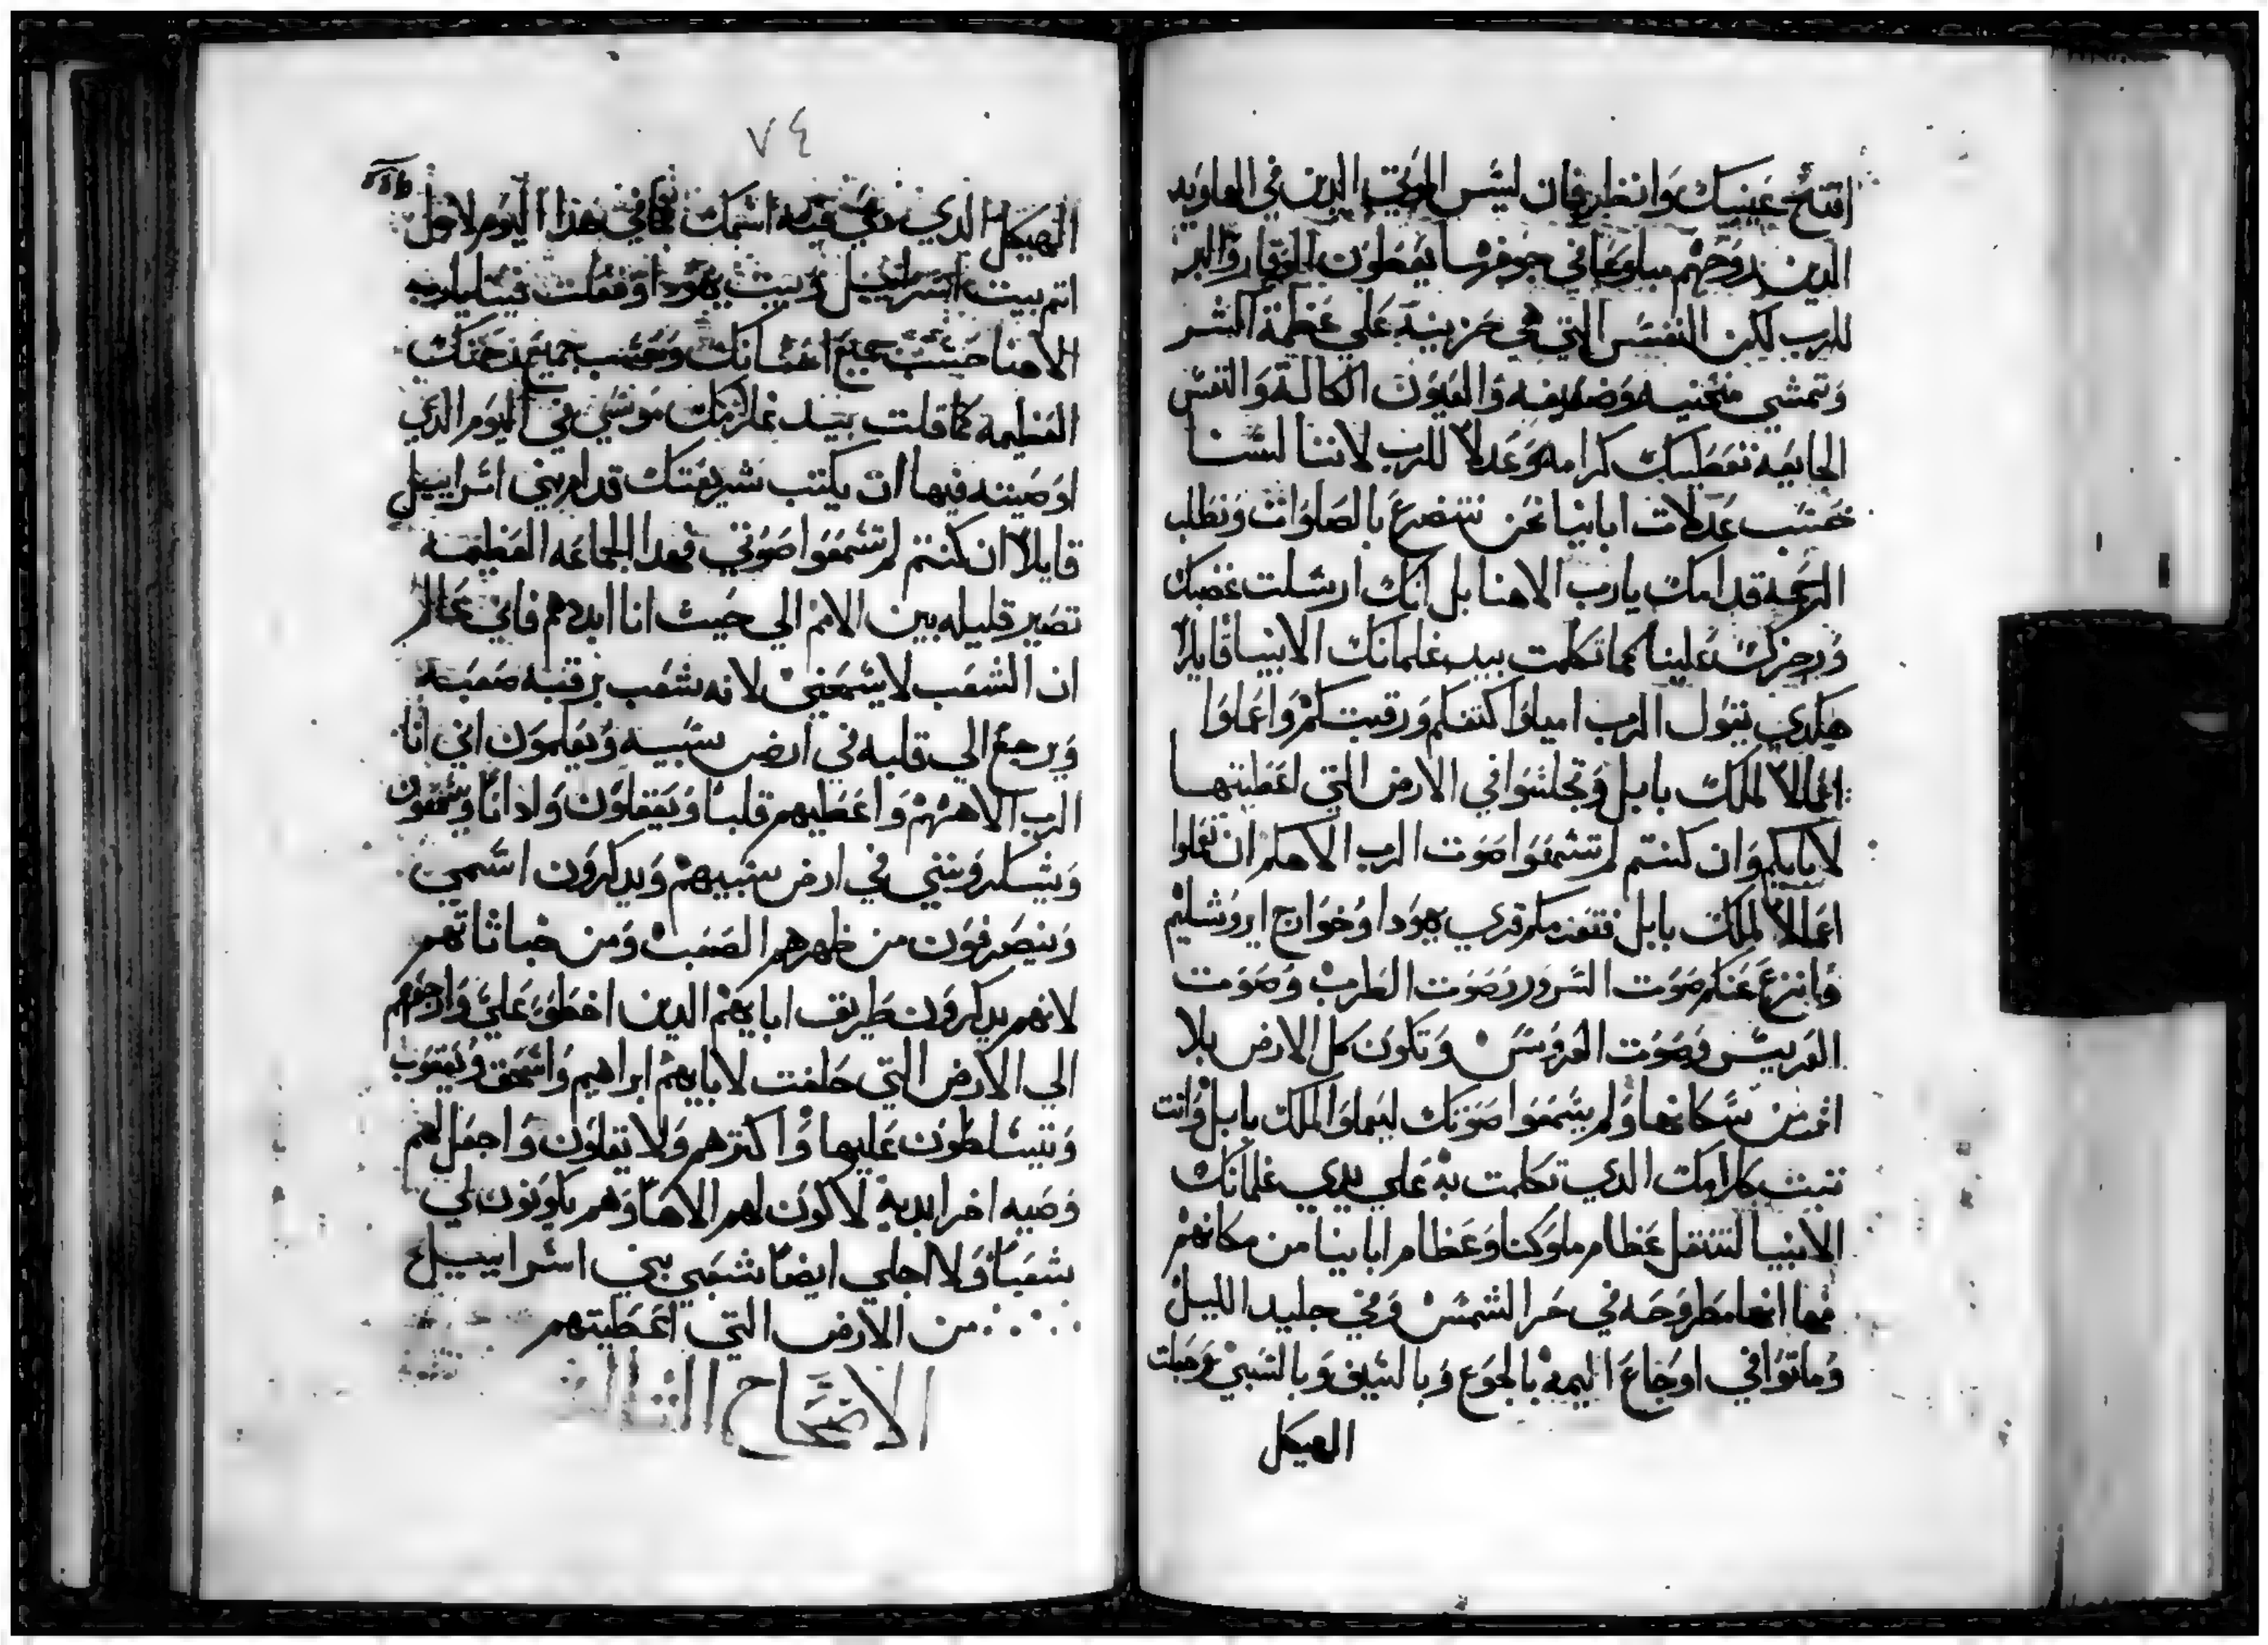 افتح عينيك وانظر فان ليس الموتي الدين في الهاويه
الدين روحهم مباوعا في جوفرها يعطون الوقار والبر
للرب لكن النفس التي هي حزينة علي عظمة الشر
وتمشي منحنيه وضعيفه والعيون الكالة والنفس
الجايعه تعطيك كرامه وعدلا للرب لاننا لسنا
حسب عدلات اباينا نحن نتضرع بالصلوات ونطلب
الرحمة قدامك يارب الاهنا بل انك ارسلت غضبك
ورجزك علينا كما تكلمت بيد غلمانك الانبيا قايلا
هكدي يقول الرب اميلوا كتفكم ورقبتكم واعملوا
اعمالا لملك بابل وتجلسوا في الارض التي اعطيتها
لابايكم وان كنتم لم تسمعوا صوت الرب الاهكم ان تعملوا
اعمالا لملك بابل فتعدمكم قري يهودا وخوارج ايروشليم
وانزع عنكم صوت السرور وصوت الطرب وصوت
العريس وصوت العروس وتكون كل الارض بلا
اثر من سكانها ولم يسمعوا صوتك ليعملوا لملك بابل وانت
تبت كلامك الدي تكلمت به علي يدي غلمانك
الانبيا لتنتقل عظام ملوكنا وعظام اباينا من مكانهم
فها انها مطروحه في حر الشمس وفي جليد الليل
وماتوا في اوجاع اليمه بالجوع وبالسيف وبالسبي وجعلت
الهيكل
٧٤
الهيكل الدي دعي فيه اسمك كما في هذا اليوم لاجل
اثم بيت اسراييل وبيت يهودا وفعلت فينا يارب
الاهنا حسب جميع احسانك وحسب جميع رحمتك
العظيمه كما قلت بيد غلامك موسي في اليوم الدي
اوصيته فيها ان يكتب شريعتك قدام بني اسراييل
قايلا ان كنتم لم تسمعوا صوتي فهدا الجماعه العظيمه
تصير قليله بين الامم الي حيث انا ابددهم فاني عالم
ان الشعب لا يسمعني لانه شعب برقبه صعبه
ويرجع الي قلبه في ارض سبيه ويعلمون اني انا
الرب الاههم واعطيهم قلبا ويعقلون وادانا ويسمعون
ويشكرونني في ارض سبيهم ويدكرون اسمي
وينصرفون من ظهرهم الصعب ومن خباثاتهم
لانهم يدكرون طريق ابايهم الدين اخطوا علي وارجعهم
الي الارض التي حلفت لابايهم ابراهيم واسحق ويعقوب
ويتسلطون عليها واكترهم ولا يقلون واجعل لهم
وصيه اخر ابدية لاكون لهم الاها وهم يكونون لي
شعبا ولا اجلي ايضا شعبي بني اسراييل
من الارض التي اعطيتهم
الاصحاح الثالث